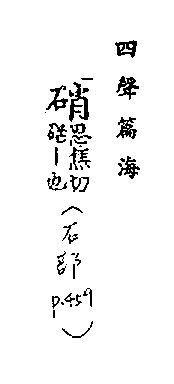 四聲篇海
硝思焦切硭｜也（石部 p.459）